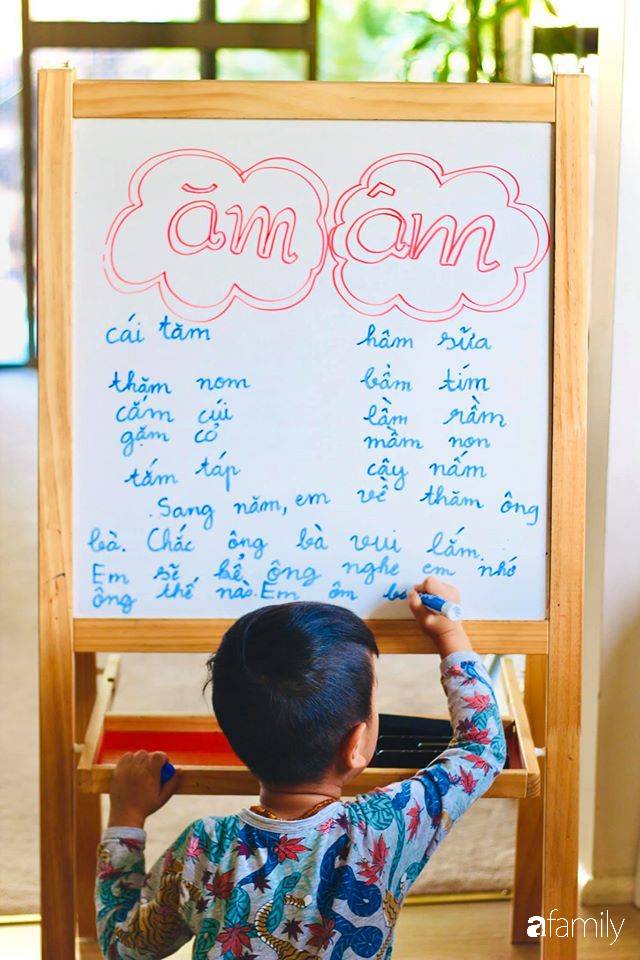 ăm âm
cái tăm hâm sữa
thăm nom bầm tím
cắm cúi lầm rầm
gặm cỏ mầm non
tắm táp cây nấm
Sang năm, em về thăm ông
bà. Chắc ông bà vui lắm.
Em sẽ kể ông nghe em nhớ
ông thế nào. Em ôm
afamily